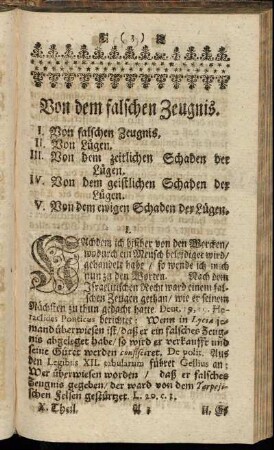 ( 1 )
Von dem falschen Zeugnis.
I. Von falschen Zeugnis.
II. Von Lügen.
III. Von dem zeitlichen Schaden der
Lügen.
IV. Von dem geistlichen Schaden der
Lügen.
V. Von dem ewigen Schaden der Lügen.
I.
NAchdem ich bißher von den Worcken/
wodurch ein Mensch beleidiget wird/
gehandelt habe / so wende ich mich
nun zu den Worten. Nach dem
Israelitischen Recht ward einem fal-
schen Zeugen gethan/ wie er seinem
Nächsten zu thun gedacht hatte. Deut. 19, 19. He-
raclides Ponticus berichtet: Wenn in Lycia je-
mand überwiesen ist/ daß er ein falsches Zeug-
nis abgeleget habe/ so wird er verkaufft und
seine Güter werden confisciret. De polit. Aus
den Legibus XII. tabularum führet Gellius an:
Wer überwiesen worden / daß er falsches
Zeugnis gegeben/ der ward von dem Tarpeji-
schen Felsen gestürtzet. L. 20. c. 1.
X. Theil.